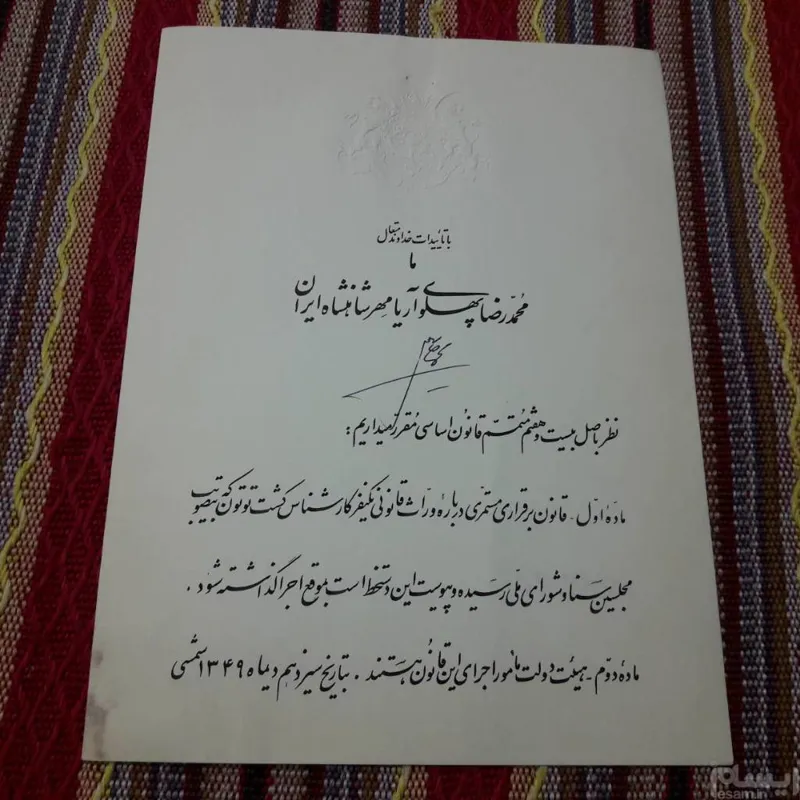 با تأییدات خداوند متعال
ما
محمّدرضا پهلوی آریامهر شاهنشاه ایران
نظر باصل بیست و هفتم متمّم قانون اساسی مقرّر میداریم :
مادهٔ اوّل - قانون برقراری مستمرّی دربارهٔ ورّاث قانونی یکنفر کارشناس کشت توتون که بتصویب
مجلسین سنا و شورای ملّی رسیده و پیوست این دستخط است بموقع اجرا گذاشته شود .
مادهٔ دوّم - هیئت دولت مأمور اجرای این قانون هستند . بتاریخ سیزدهم دیماه ۱۳۴۹ شمسی
ایسام
esam.ir